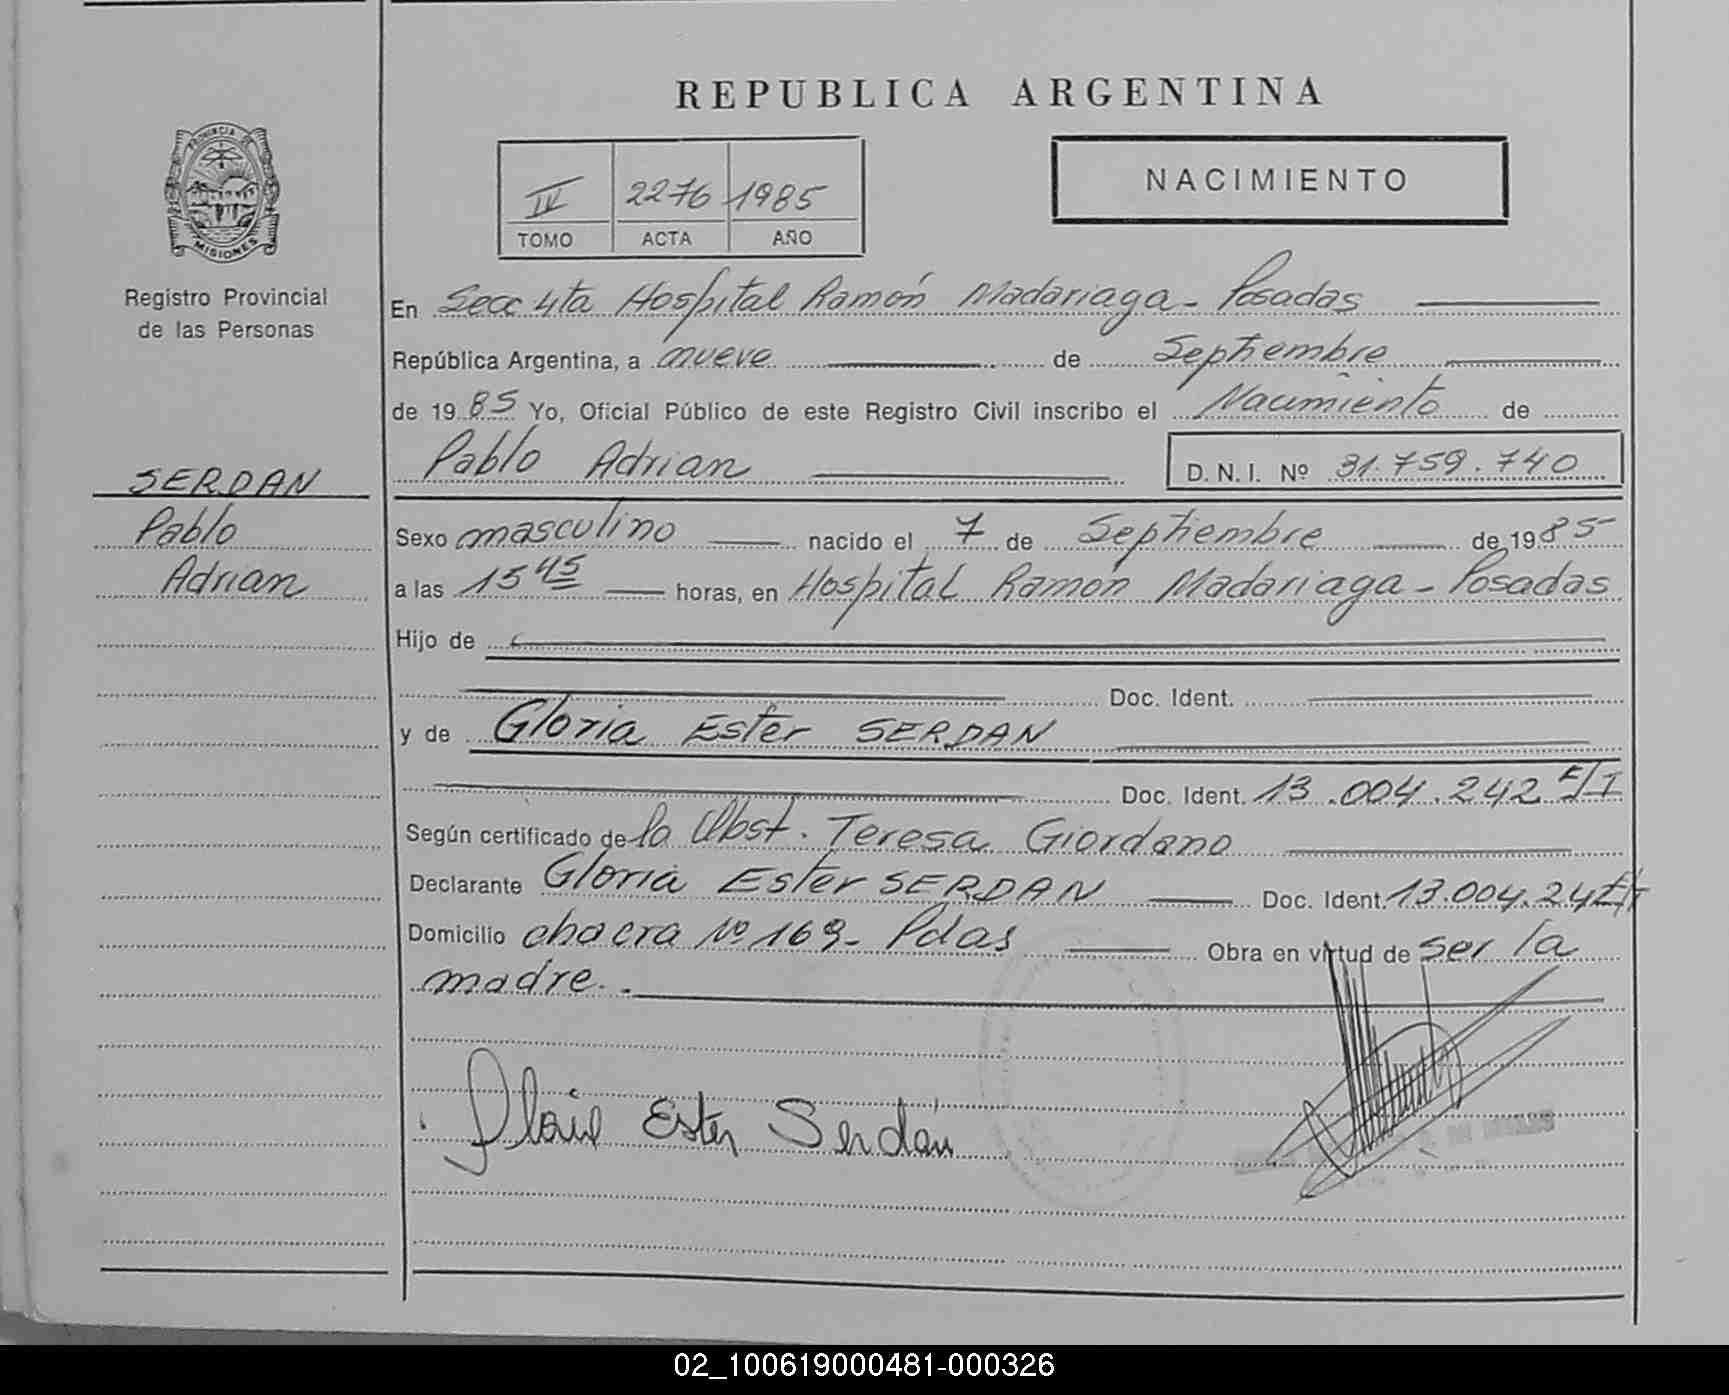 REPUBLICA ARGENTINA
PROVINCIA DE
MISIONES
Registro Provincial
de las Personas
IV 2276 1985
TOMO ACTA AÑO
NACIMIENTO
En Secc 4ta Hospital Ramón Madariaga - Posadas
República Argentina, a nueve de Septiembre
de 1985 Yo, Oficial Público de este Registro Civil inscribo el Nacimiento de
Pablo Adrian D.N.I. Nº 31.759.740
SERDAN
Pablo
Adrian
Sexo masculino nacido el 7 de Septiembre de 1985
a las 15 45 horas, en Hospital Ramón Madariaga - Posadas
Hijo de
Doc. Ident.
y de Gloria Ester SERDAN
Doc. Ident. 13.004.242 E/T
Según certificado de la Obst. Teresa Giordano
Declarante Gloria Ester SERDAN Doc. Ident. 13.004.242 E/T
Domicilio chacra Nº 169- Pdas Obra en virtud de ser la
madre.-
Gloria Ester Serdán
02_100619000481-000326